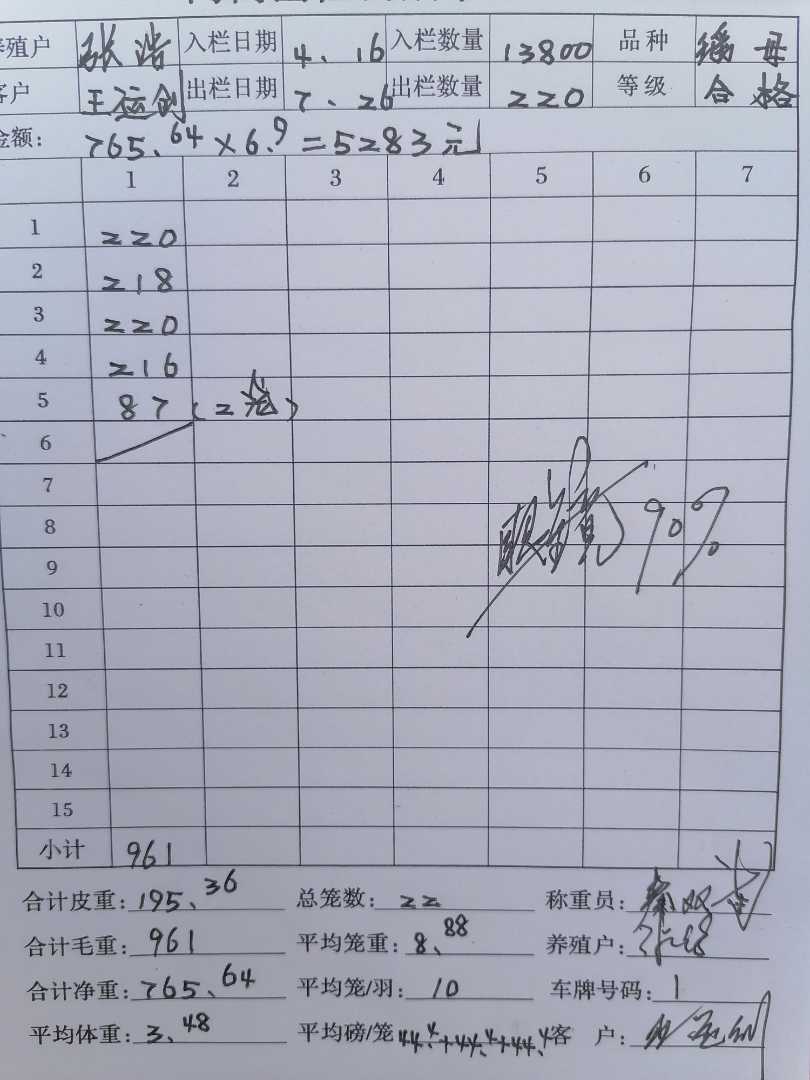 养殖户 张浩 入栏日期 4、16 入栏数量 13800 品种 瑶母
客户 王运剑 出栏日期 7、26 出栏数量 220 等级 合格
金额: 765、64×6.9=5283元
1 2 3 4 5 6 7
1 220
2 218
3 220
4 216
5 87(2笼)
6
7
8
9 90%
10
11
12
13
14
15
小计 961
合计皮重: 195、36 总笼数: 22 称重员: 秦双
合计毛重: 961 平均笼重: 8、88 养殖户: 张浩
合计净重: 765、64 平均笼/羽: 10 车牌号码: 1
平均体重: 3、48 平均磅/笼 44.4+44.4+44.4 客户: